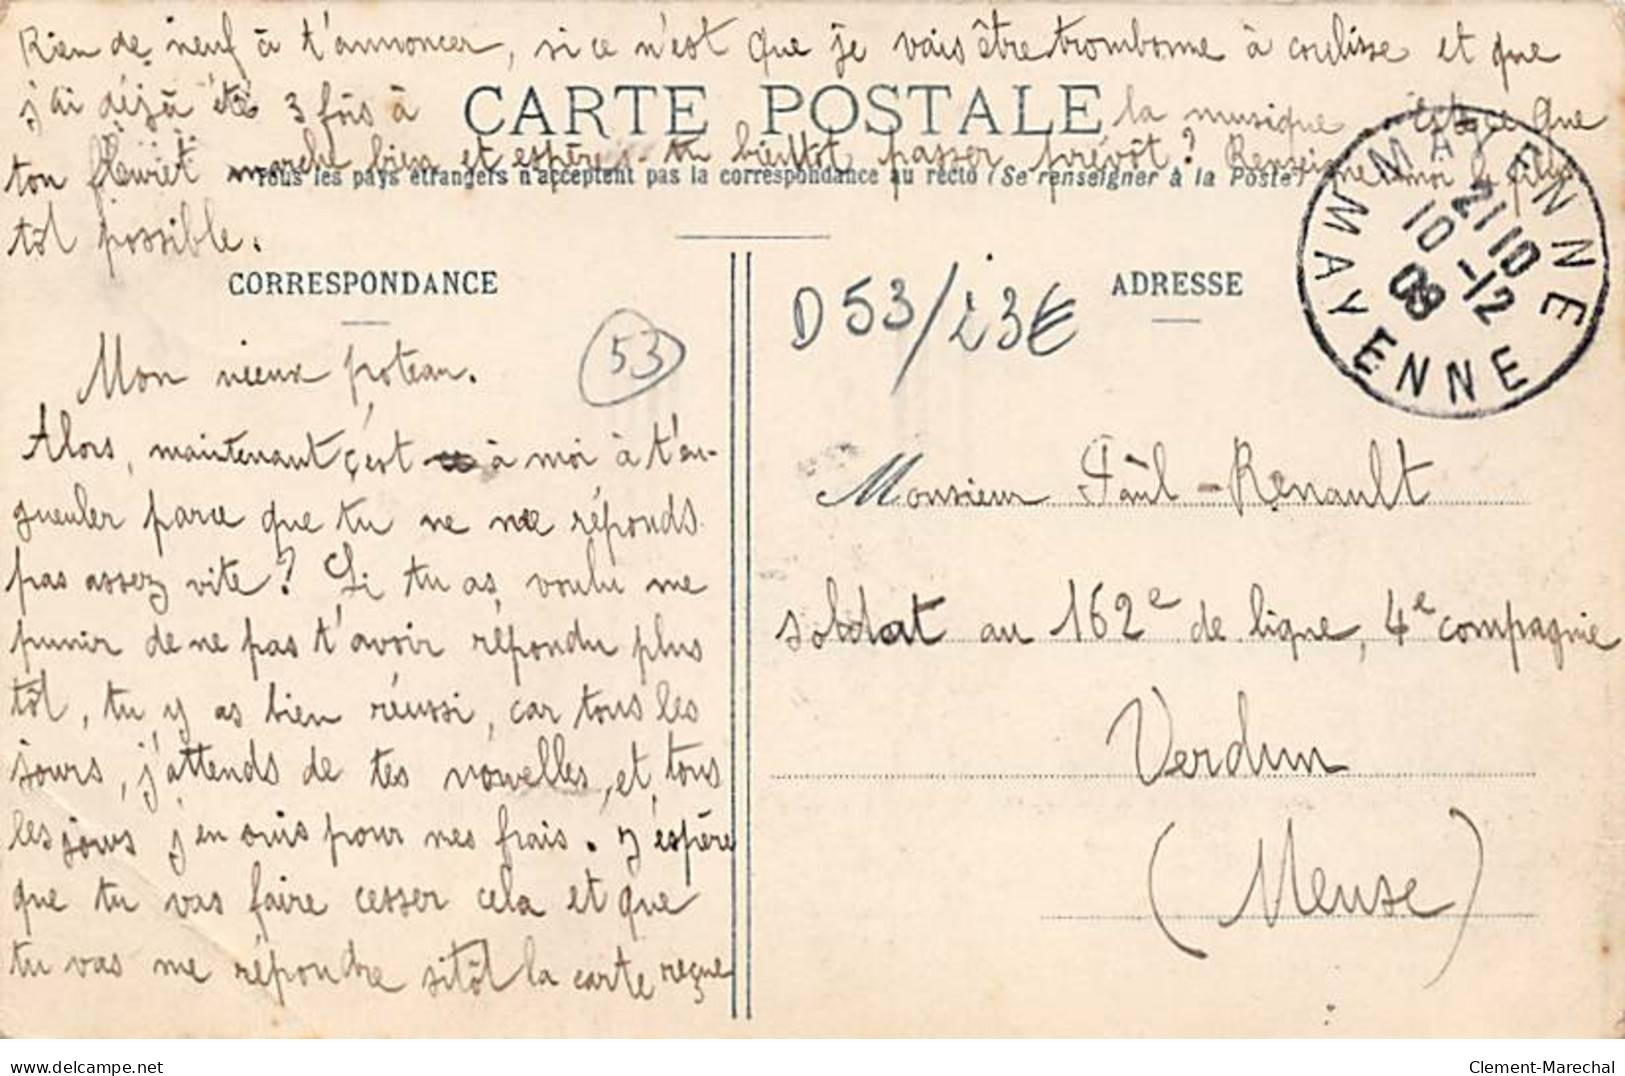 Rien de neuf à t'annoncer, si ce n'est que je vais être trombonne à coulisse et que
j'ai déjà été 3 fois à la musique est-ce que
CARTE POSTALE
ton fleuret marche bien et espères-tu bientôt passer prévôt? Renseigne-moi le plus
Tous les pays étrangers n'acceptent pas la correspondance au recto (Se renseigner à la Poste)
tôt possible.
CORRESPONDANCE
Mon vieux poteau.
53
Alors, maintenant ç'est à moi à t'en-
gueuler parce que tu ne me réponds
pas assez vite? Si tu as voulu me
punir de ne pas t'avoir répondu plus
tôt, tu y as bien réussi, car tous les
jours, j'attends de tes nouvelles, et tous
les jours j'en suis pour mes frais. J'espère
que tu vas faire cesser cela et que
tu vas me répondre sitôt la carte reçue
D53/23€
ADRESSE
MAYENNE
21 10
10 -12
08
MAYENNE
Monsieur Paul-Renault
soldat au 162e de ligne, 4e compagnie
Verdun
(Meuse)
https://www.delcampe.net
Clement-Marechal